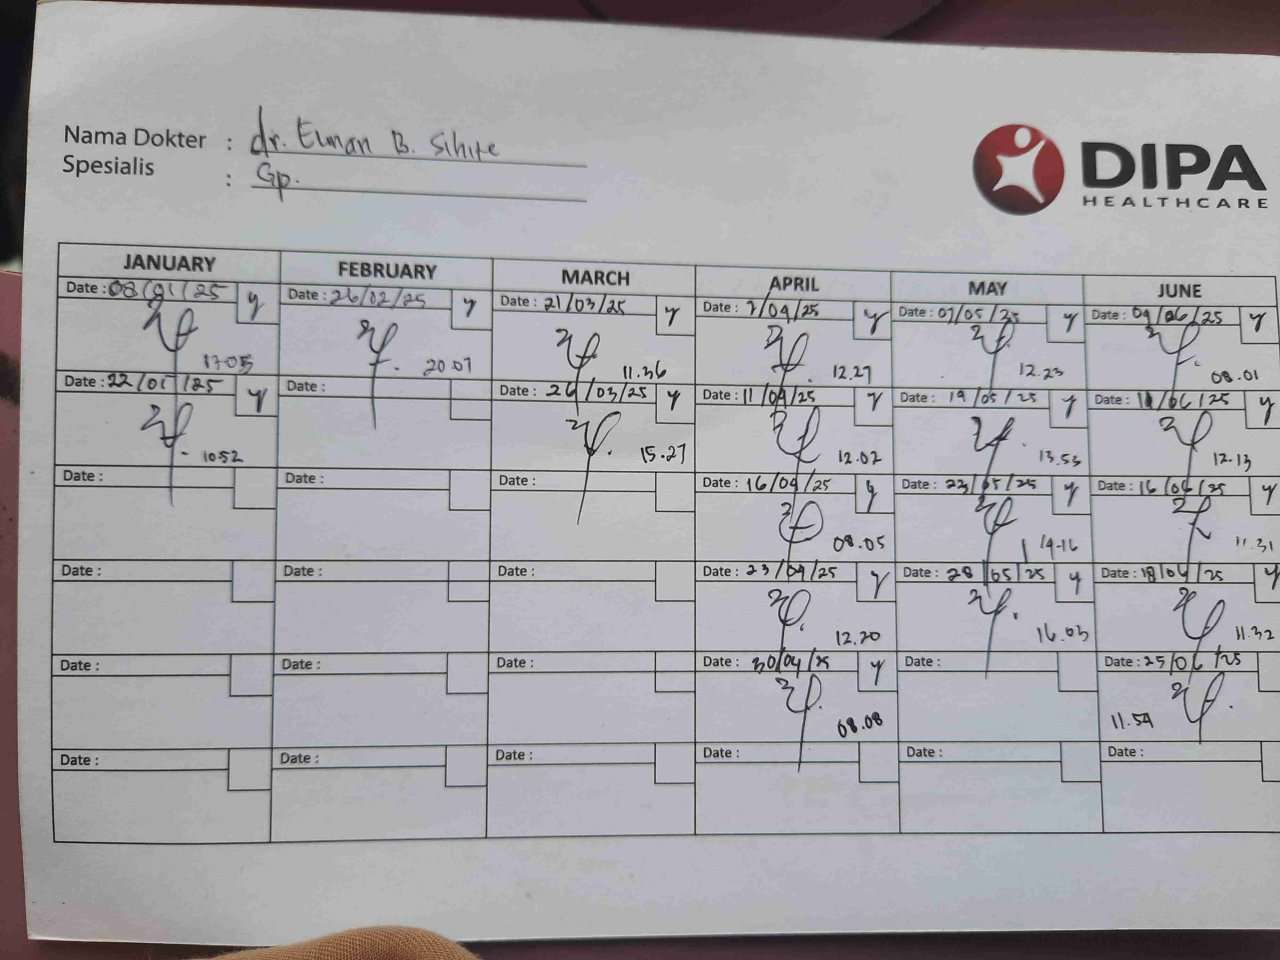 Nama Dokter : dr. Elman B. Sihite
Spesialis : Gp.
DIPA
HEALTHCARE
JANUARY FEBRUARY MARCH APRIL MAY JUNE
Date : 08/01/25 y Date : 26/02/25 y Date : 21/03/25 y Date : 2/04/25 y Date : 07/05/25 y Date : 04/06/25 y
17.05 20.07 11.36 12.27 12.23 08.01
Date : 22/01/25 y Date : Date : 26/03/25 y Date : 11/04/25 y Date : 19/05/25 y Date : 11/06/25 y
10.52 15.27 12.02 13.53 12.13
Date : Date : Date : Date : 16/04/25 y Date : 23/05/25 y Date : 16/06/25 y
08.05 14.16 11.31
Date : Date : Date : Date : 23/04/25 y Date : 28/05/25 y Date : 18/06/25 y
12.20 16.03 11.32
Date : Date : Date : Date : 30/04/25 y Date : Date : 25/06/25
08.08 11.59
Date : Date : Date : Date : Date : Date :